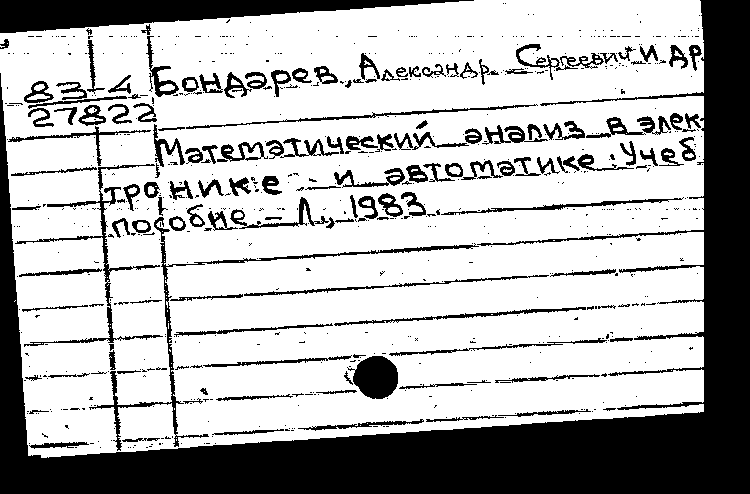 83-4
27822
Бондарев, Александр Сергеевич и др.
Математический анализ в элек-
тронике и автоматике: Учеб
пособие. – Л., 1983.